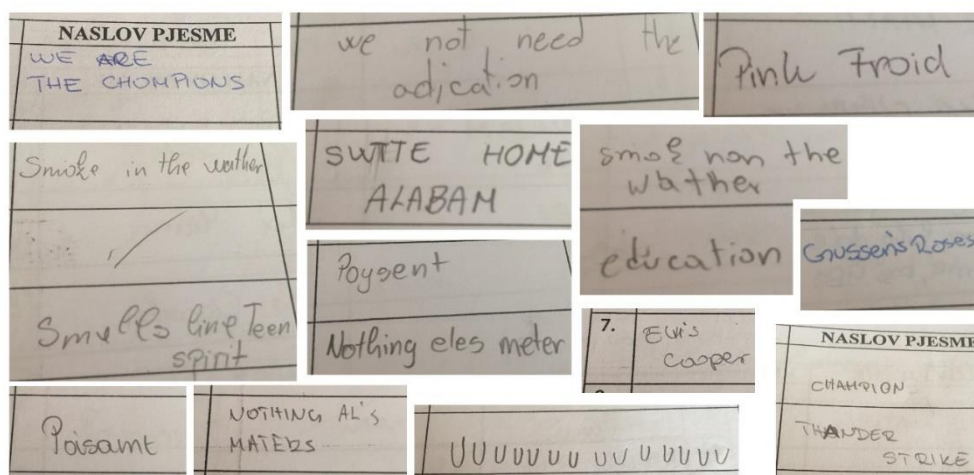 NASLOV PJESME
WE ARE
THE CHOMPIONS
we not need the
adication
Pink Froid
Smoke in the wather
Smells line Teen
spirit
SWTTE HOME
ALABAM
smok non the
wather
education
Gnussen's Roses
Poysent
Nothing eles meter
7.
Elvis
Cooper
NASLOV PJESME
CHAMPION
THANDER
STRIKE
Poisamt
NOTHING AL's
MATERS
UUUUUUU UU U UUUUU